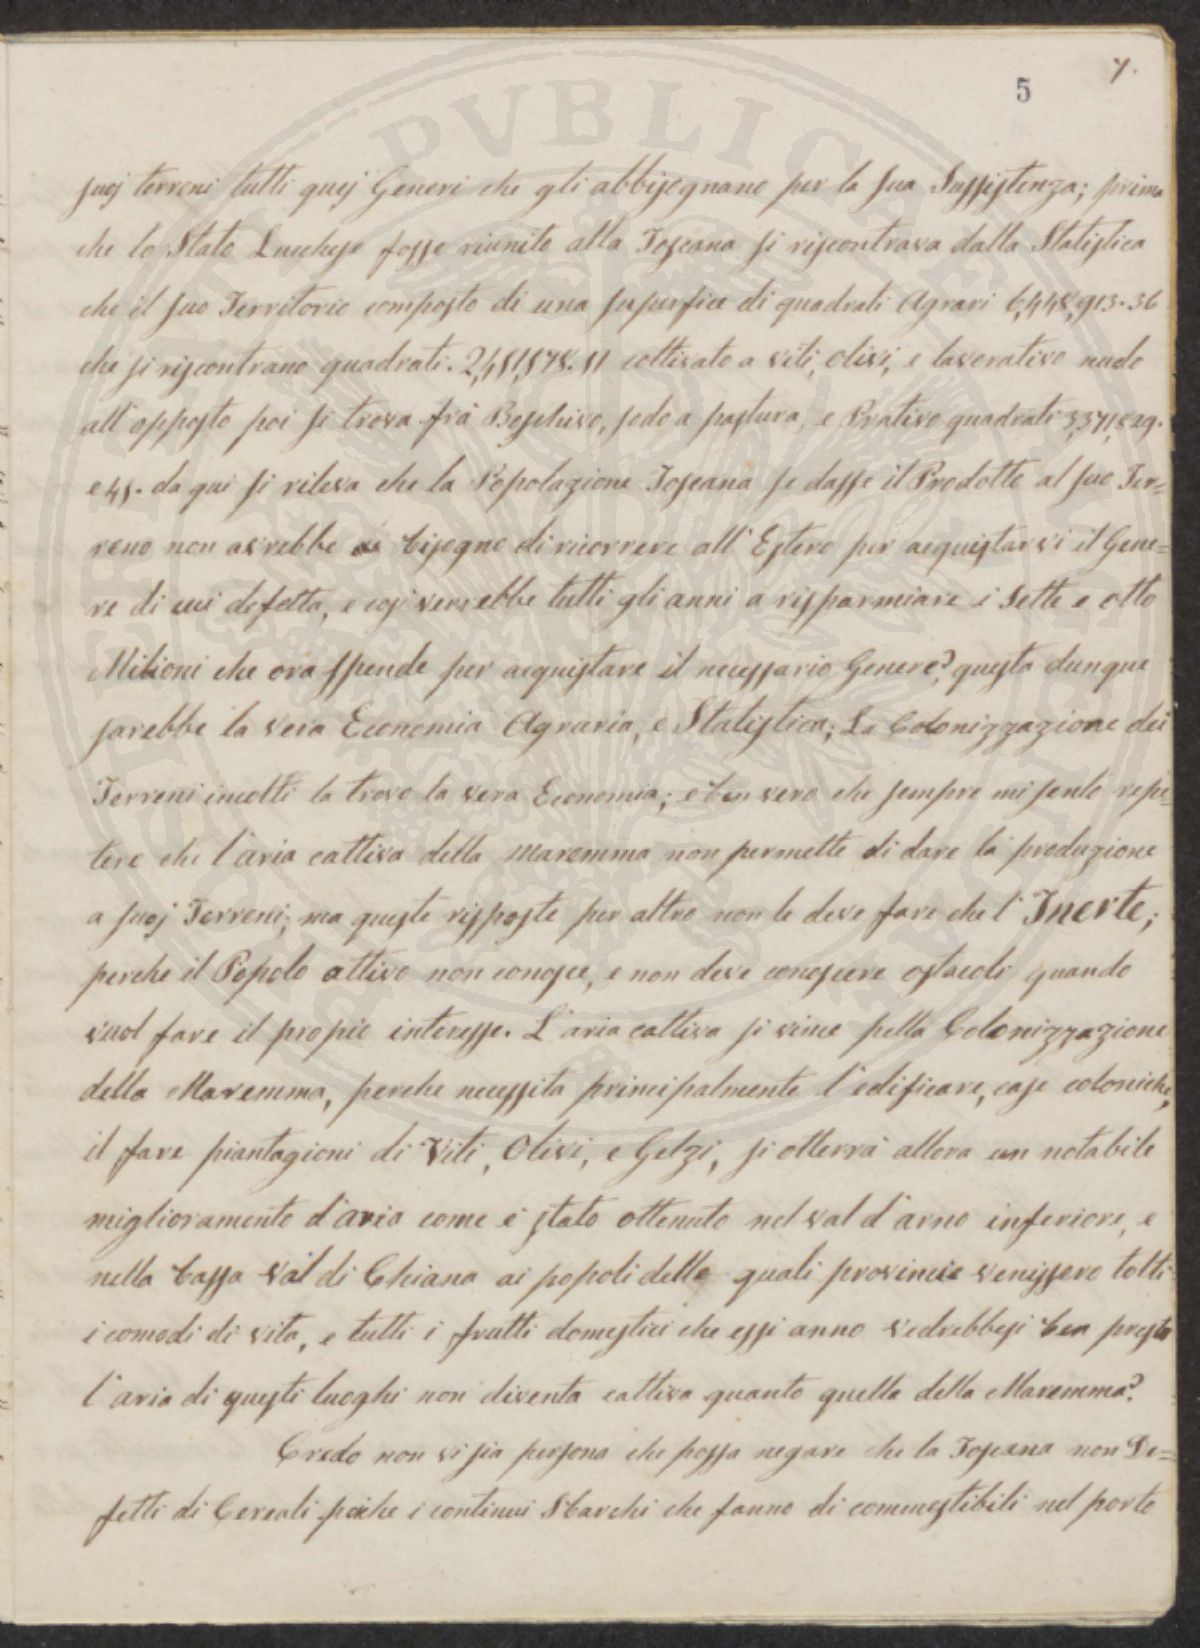 5
7.
suoj terreni tutti quej Generi che gli abbisognano per la sua Sussistenza; prima
che lo Stato Lucchese fosse riunito alla Toscana si riscontrava dalla Statistica
che il suo Territorio composto di una superficie di quadrati Agrari 6,448,913.36
che si riscontrano quadrati. 2,481,878.81 coltivato a viti, olivi, e lavorativo nudo
all'opposto poi si trova frà Boschivo, sodo a pastura, e Prativo quadrati 3,371,829.
e 45. da qui si rileva che la Popolazione Toscana se dasse il Prodotto al suo Ter=
reno non avrebbe bisogno di ricorrere all'Estero per acquistarvi il Gene=
re di cui defetta, e così verrebbe tutti gli anni a risparmiare i Sette e otto
Milioni che ora spende per acquistare il necessario Genere? questa dunque
sarebbe la vera Economia Agraria, e Statistica; La Colonizzazione dei
Terreni incolti la trovo la vera Economia; e ben vero che sempre mi sento repe=
tere che l'aria cattiva della maremma non permette di dare la produzione
a suoj Terreni; ma queste risposte per altro non le deve fare che l'Inerte;
perche il Popolo attivo non conosce, e non deve conoscere ostacoli quando
vuol fare il propio interesse. L'aria cattiva si vince pella Colonizzazione
della Maremma, perche necessita principalmente l'edificare, case coloniche,
il fare piantagioni di Viti, Olivi, e Gelzi, si otterrà allora un notabile
miglioramento d'aria come è stato ottenuto nel val d'arno inferiore, e
nella bassa Val di Chiana ai popoli delle quali provincie venissero tolti
i comodi di vita, e tutti i frutti domestici che essi anno vedrebbesi ben presto
l'aria di questi luoghi non diventa cattiva quanto quella della Maremma?
Credo non vi sia persona che possa negare che la Toscana non De=
fetti di Cereali poiche i continui Sbarchi che fanno di commestibili nel porto
PVBLICA